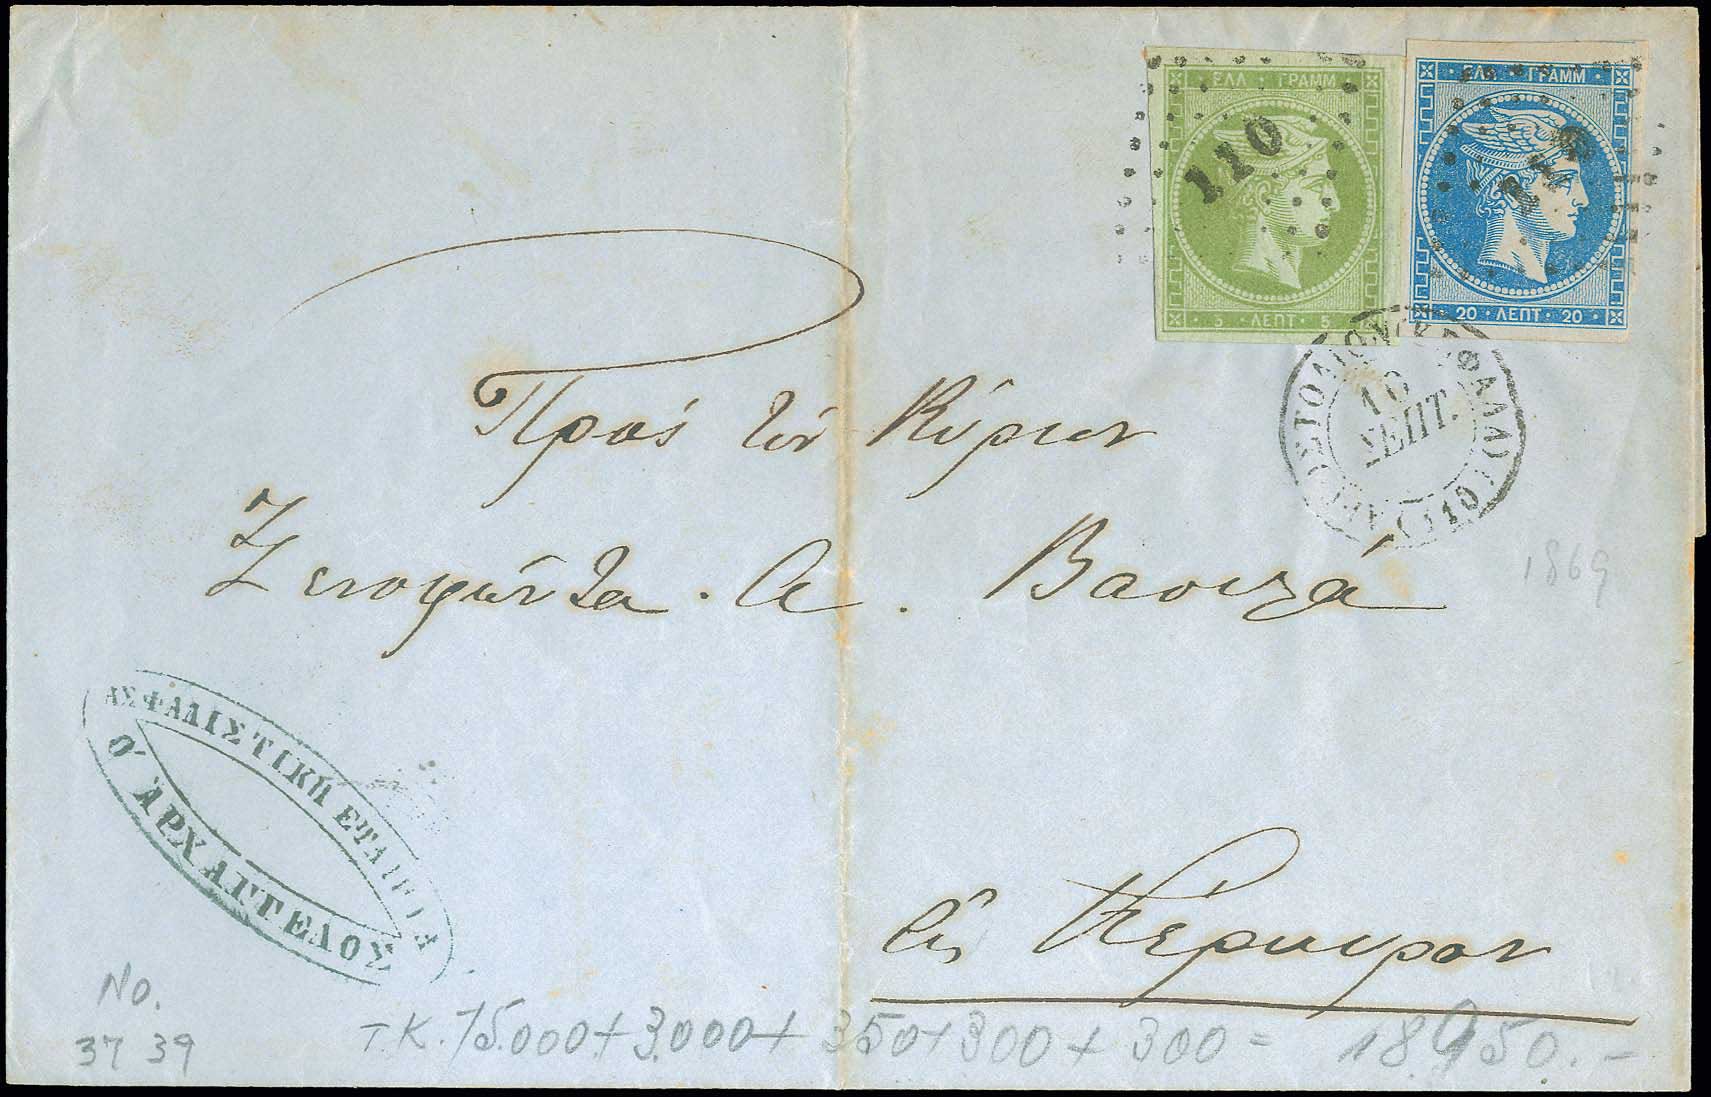 ΕΛΛ · ΓΡΑΜΜ
110
5 · ΛΕΠΤ · 5
ΕΛΛ · ΓΡΑΜΜ
20 · ΛΕΠΤ · 20
16
ΣΕΠΤ.
(110)
Πρὸς τὸν Κύριον
Ξενοφώντα. Α. Βασιλᾶ
1869
εἰς Κέρκυραν
ΑΣΦΑΛΙΣΤΙΚΗ ΕΤΑΙΡΙΑ
Ο ἈΡΧΑΓΓΕΛΟΣ
No.
37 39
T.K. 15.000 + 3.000 + 350 + 300 + 300 = 18.950.-